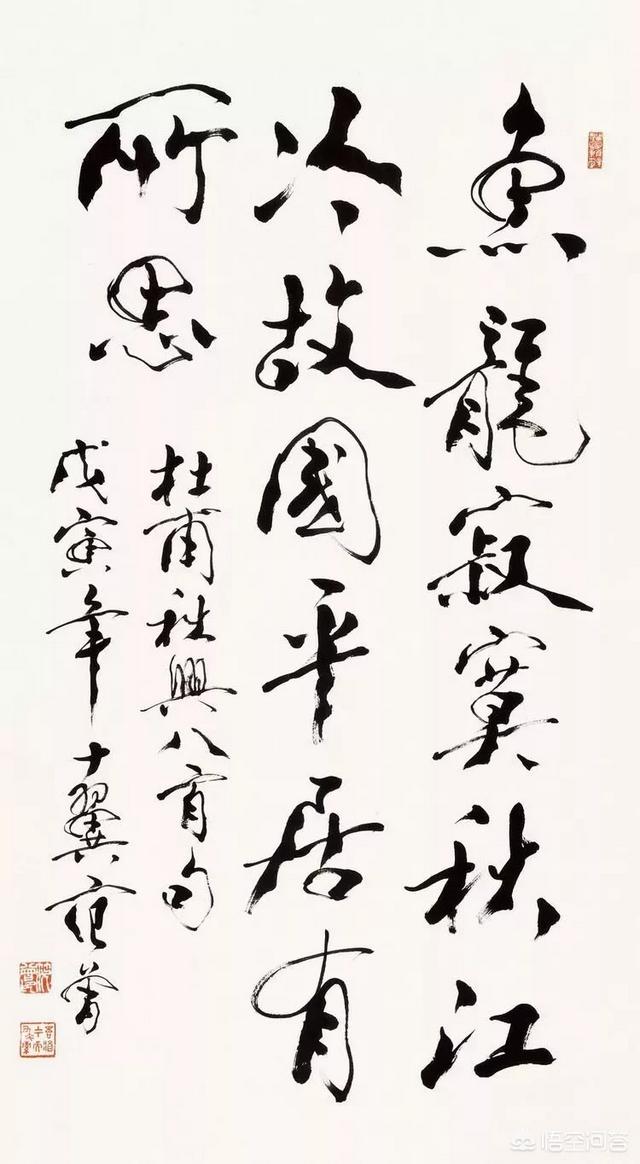 魚龍寂寞秋江
冷故國平居有
所思
杜甫秋興八首句
戊寅年十翼范曾
悟空问答